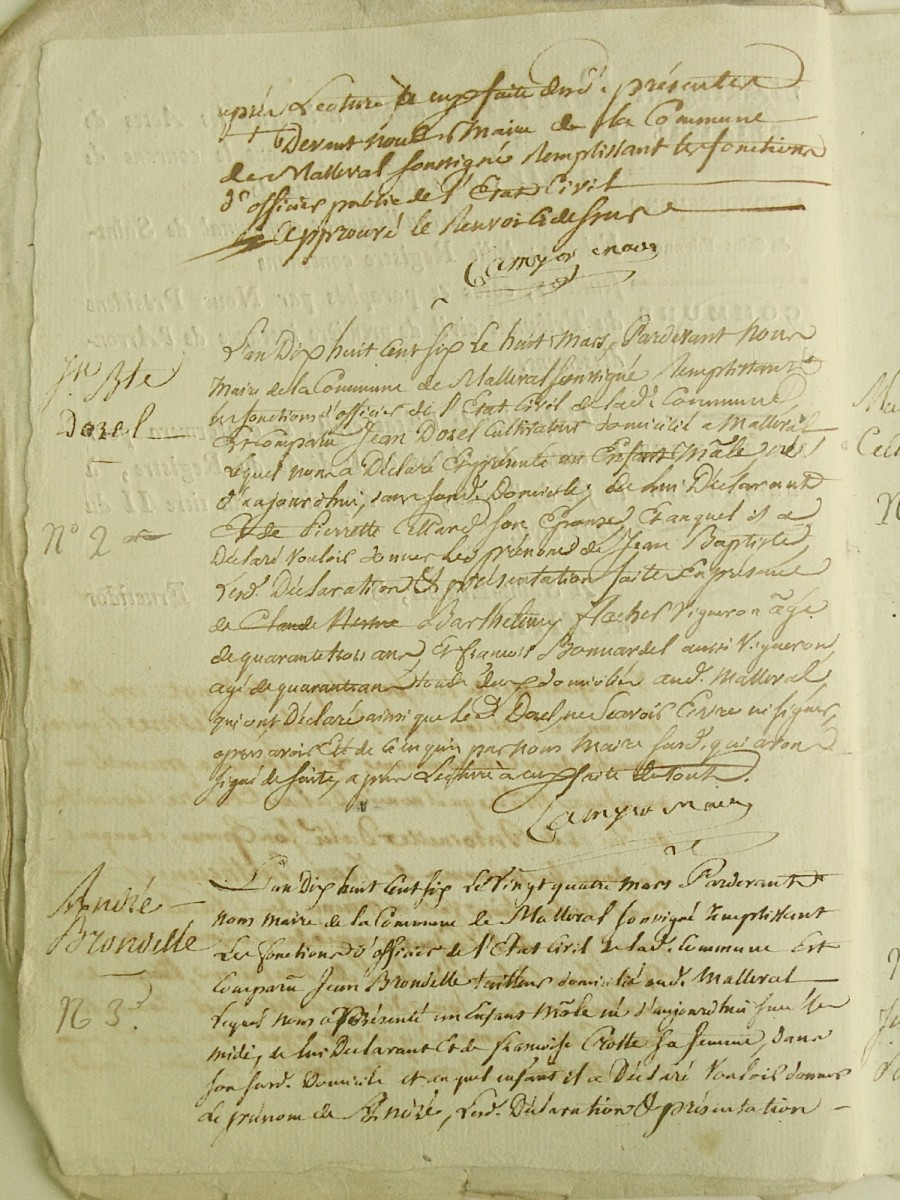 après Lecture à eux faite dud. présentes
Devant nous Maire de la Commune
de Malleval soussigné Remplissant les fonctions
d'officier public de l'Etat Civil
approuvé le Renvoi cidessus
Camyer maire
Jn Bte
Dozel
N° 2
L'an Dix huit Cent six le huit Mars, Pardevant nous
Maire de la Commune de Malleval soussigné Remplissant
les fonctions d'officier de l'Etat Civil de lad. Commune
Est comparu Jean Dozel Cultivateur domicilié a Malleval
lequel nous a Déclaré Et présenté un Enfant Mâle, né
d'aujourdhui, dans son Domicile, de lui Déclarant
Et de Pierrette son Epouse, Et auquel il a
Déclaré Vouloir donner les prénoms de Jean Baptiste
Lesd. Déclaration & présentation faites En présence
de Claude Barthelemy flachet Vigneron âgé
de quarante trois ans, Et françois Bonnardel aussi Vigneron,
agé de quarante ans tous deux domiciliés aud. Malleval
qui ont Déclaré ainsi que le d. Dozel, ne Scavoir Ecrire ni signer,
de ce enquis par nous Maire susd. qui avons
signé de suite, après Lecture à eux faite du tout.
Camyer Maire
André
Brondelle
N 3.
L'an Dix huit Cent six le Vingt quatre mars Pardevant
nous maire de la Commune de Malleval soussigné Remplissant
Les fonctions d'officier de l'Etat Civil de lad. Commune Est
Comparu Jean Brondelle tailleur domicilié aud. Malleval
Lequel nous a Présenté un Enfant Mâle né d'aujourdhui
midi, de lui Declarant Et de francoise Crotte sa femme, dans
son susd. Domicile et auquel enfant il a Déclaré Vouloir donner
Le prénom de André, Lesd. Déclaration & présentation